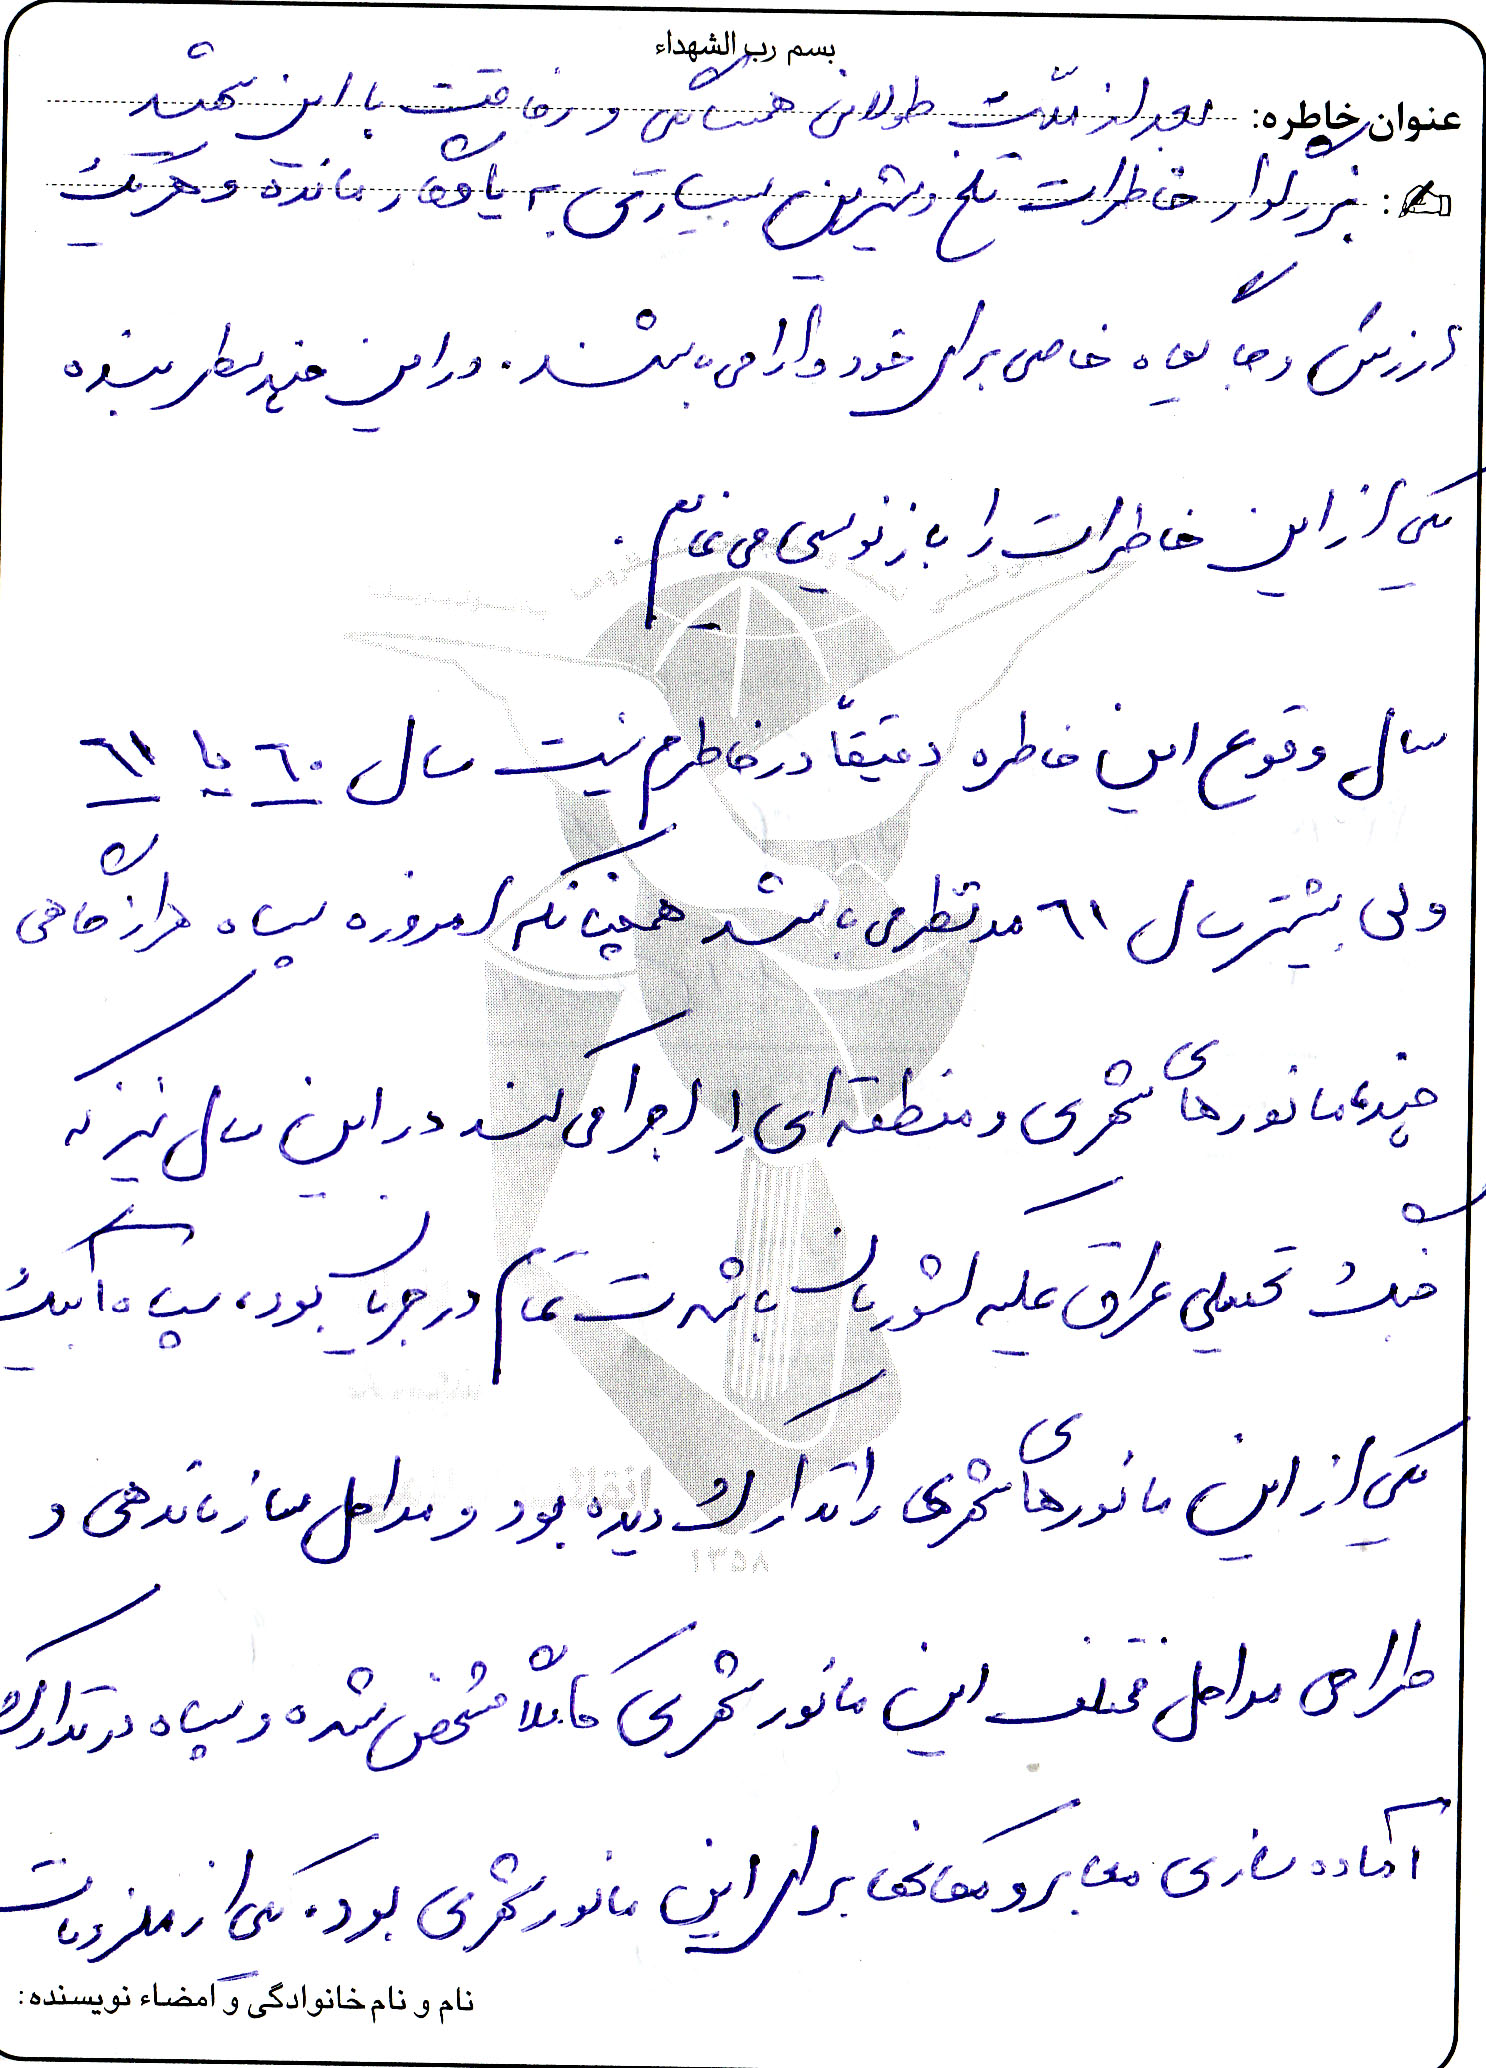 بسم رب الشهداء
عنوان خاطره: بعد از مدّت طولانی همسنگری و رفاقت با این شهید
بزرگوار خاطرات تلخ و شیرین بسیاری به یادگار مانده و هر یک
ارزش و جایگاه خاصی برای خود دارا می باشند. در این چند سطر بنده
یکی از این خاطرات را بازنویسی می نمایم.
سال وقوع این خاطره دقیقاً در خاطرم نیست سال ٦٠ یا ٦١
ولی بیشتر سال ٦١ مدنظر می باشد همچنانکه امروزه سپاه هر از گاهی
چند، مانورهای شهری و منطقه ای را اجرا می کند در این سال نیز که
جنگ تحمیلی عراق علیه کشورمان با شدت تمام در جریان بود، سپاه آبیک
یکی از این مانورهای شهری را تدارک دیده بود و مراحل سازماندهی و
طراحی مراحل مختلف این مانور شهری کاملاً مشخص شده و سپاه در تدارک
آماده سازی معابر و مکانها برای این مانور شهری بود. یکی از ملزومات
نام و نام خانوادگی و امضاء نویسنده:
۱۳۵۸